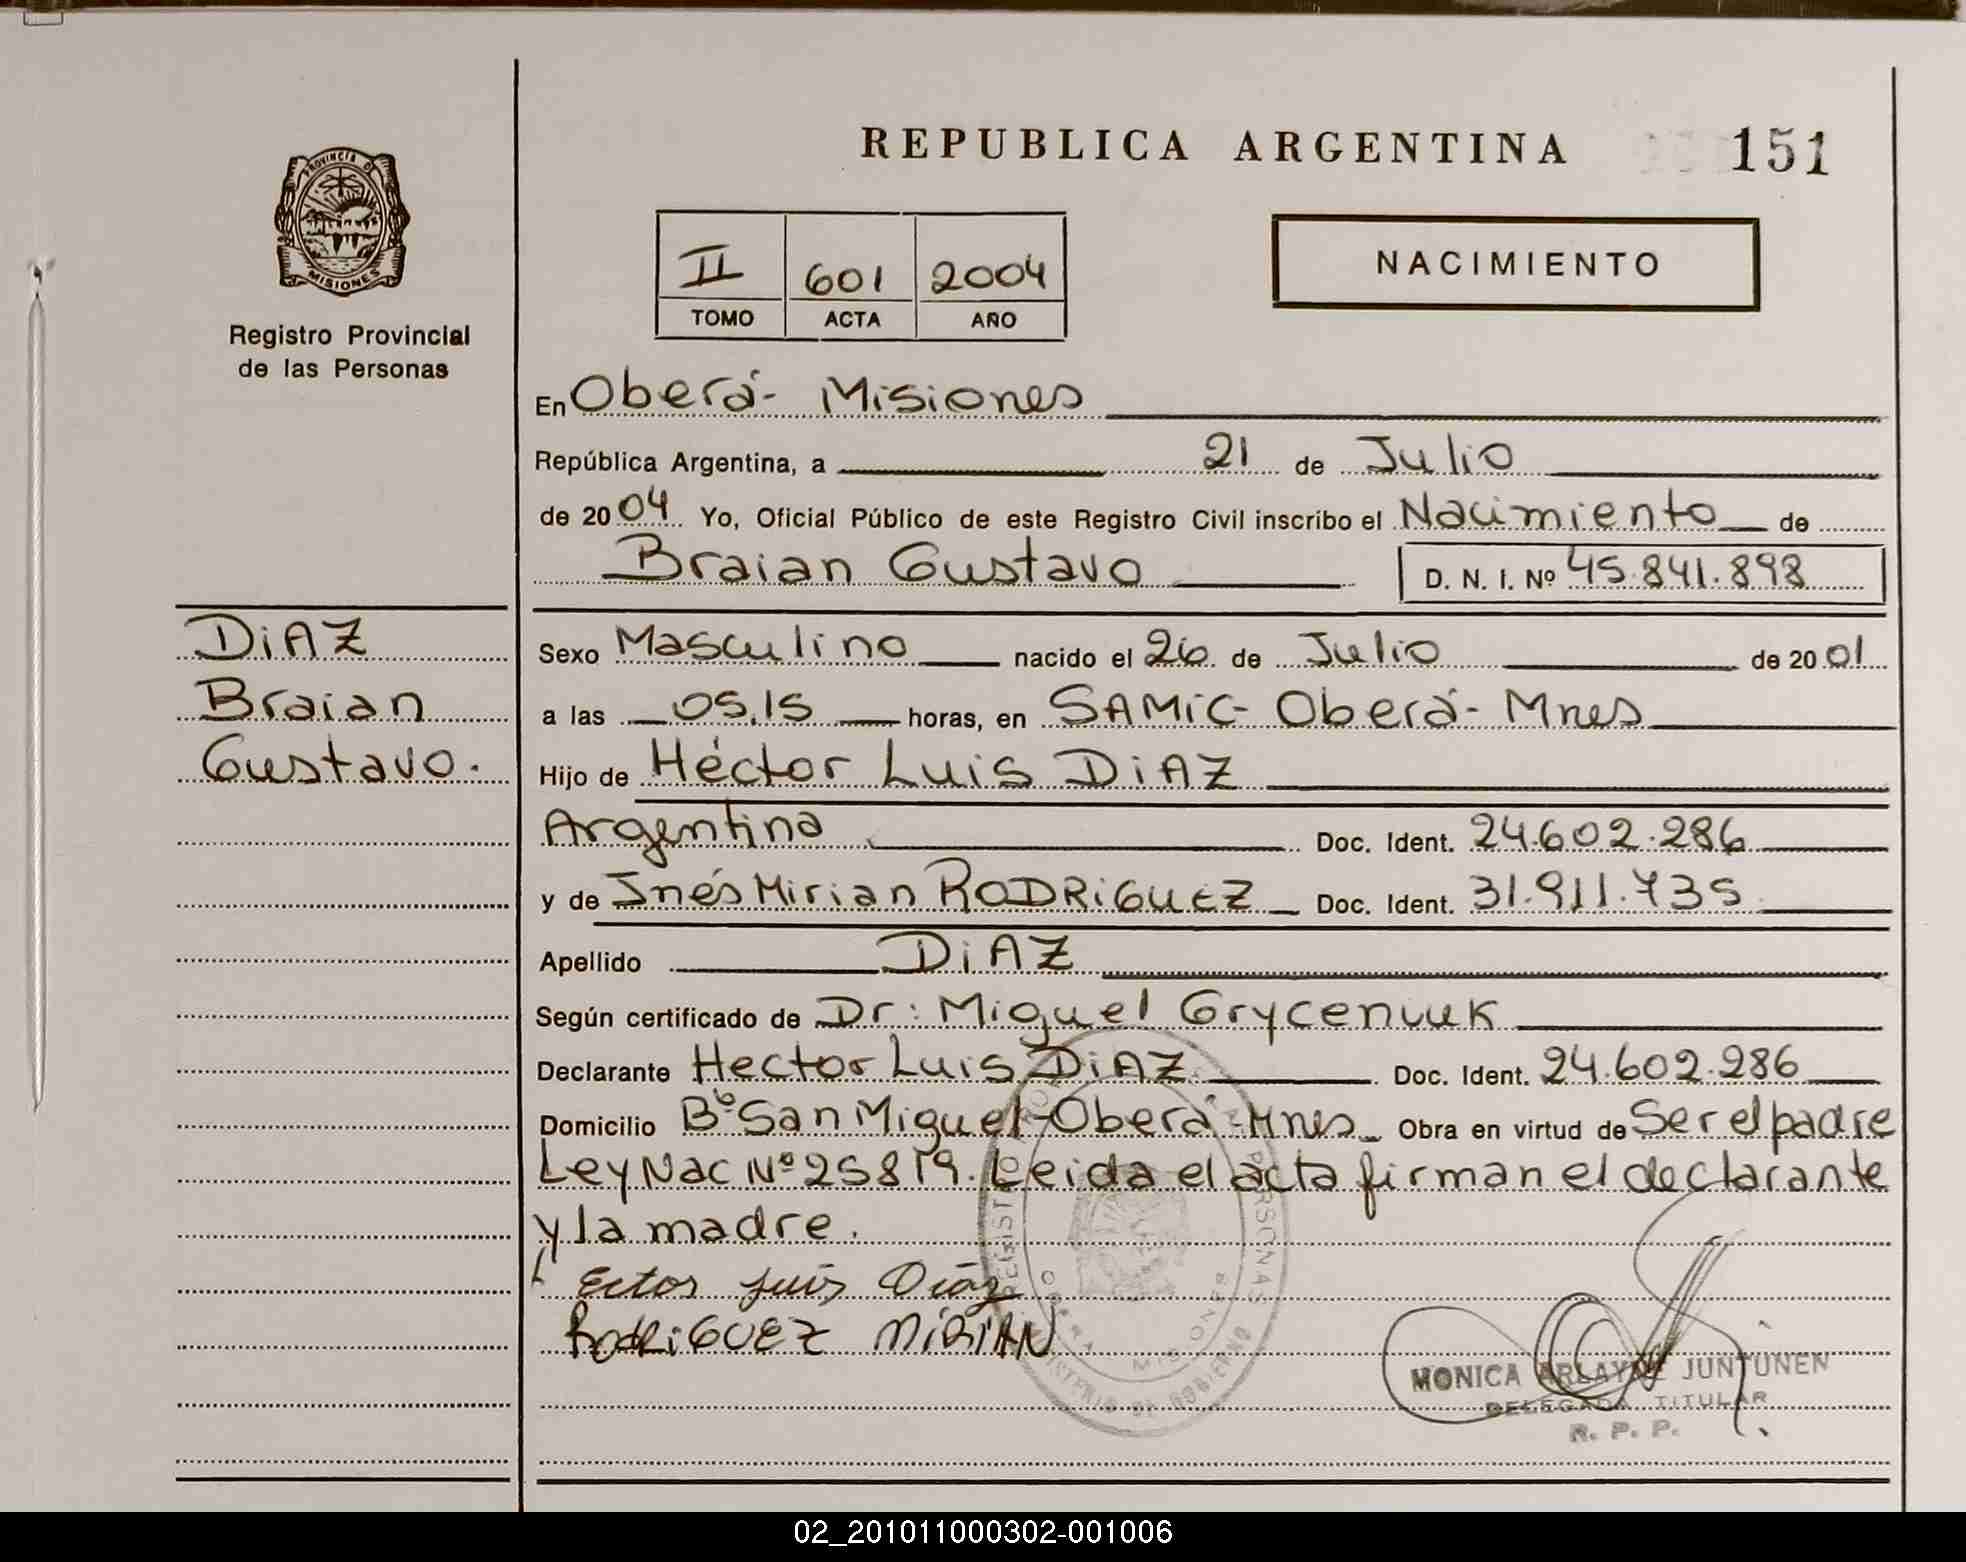 REPUBLICA ARGENTINA 151
PROVINCIA DE
MISIONES
Registro Provincial
de las Personas
II 601 2004
TOMO ACTA AÑO
NACIMIENTO
En Oberá - Misiones
República Argentina, a 21 de Julio
de 2004 Yo, Oficial Público de este Registro Civil inscribo el Nacimiento de
Braian Gustavo D. N. I. Nº 45.841.898
DiAZ
Braian
Gustavo.
Sexo Masculino nacido el 26 de Julio de 2001
a las 05.15 horas, en SAMiC - Oberá - Mnes
Hijo de Héctor Luis DiAZ
Argentina Doc. Ident. 24.602.286
y de Inés Mirian RODRiGUEZ Doc. Ident. 31.911.735
Apellido DiAZ
Según certificado de Dr: Miguel Gryceniuk
Declarante Hector Luis DiAZ Doc. Ident. 24.602.286
Domicilio Bº San Miguel - Oberá - Mnes Obra en virtud de Ser el padre
Ley Nac Nº 25819. Leida el acta firman el declarante
y la madre.
Ector Luis Diaz
RodRiGUEZ MiRiAN
OBERA MISIONES
MINISTERIO DE GOBIERNO
MONICA ARLAYNE JUNTUNEN
DELEGADA TITULAR
R. P. P.
02_201011000302-001006